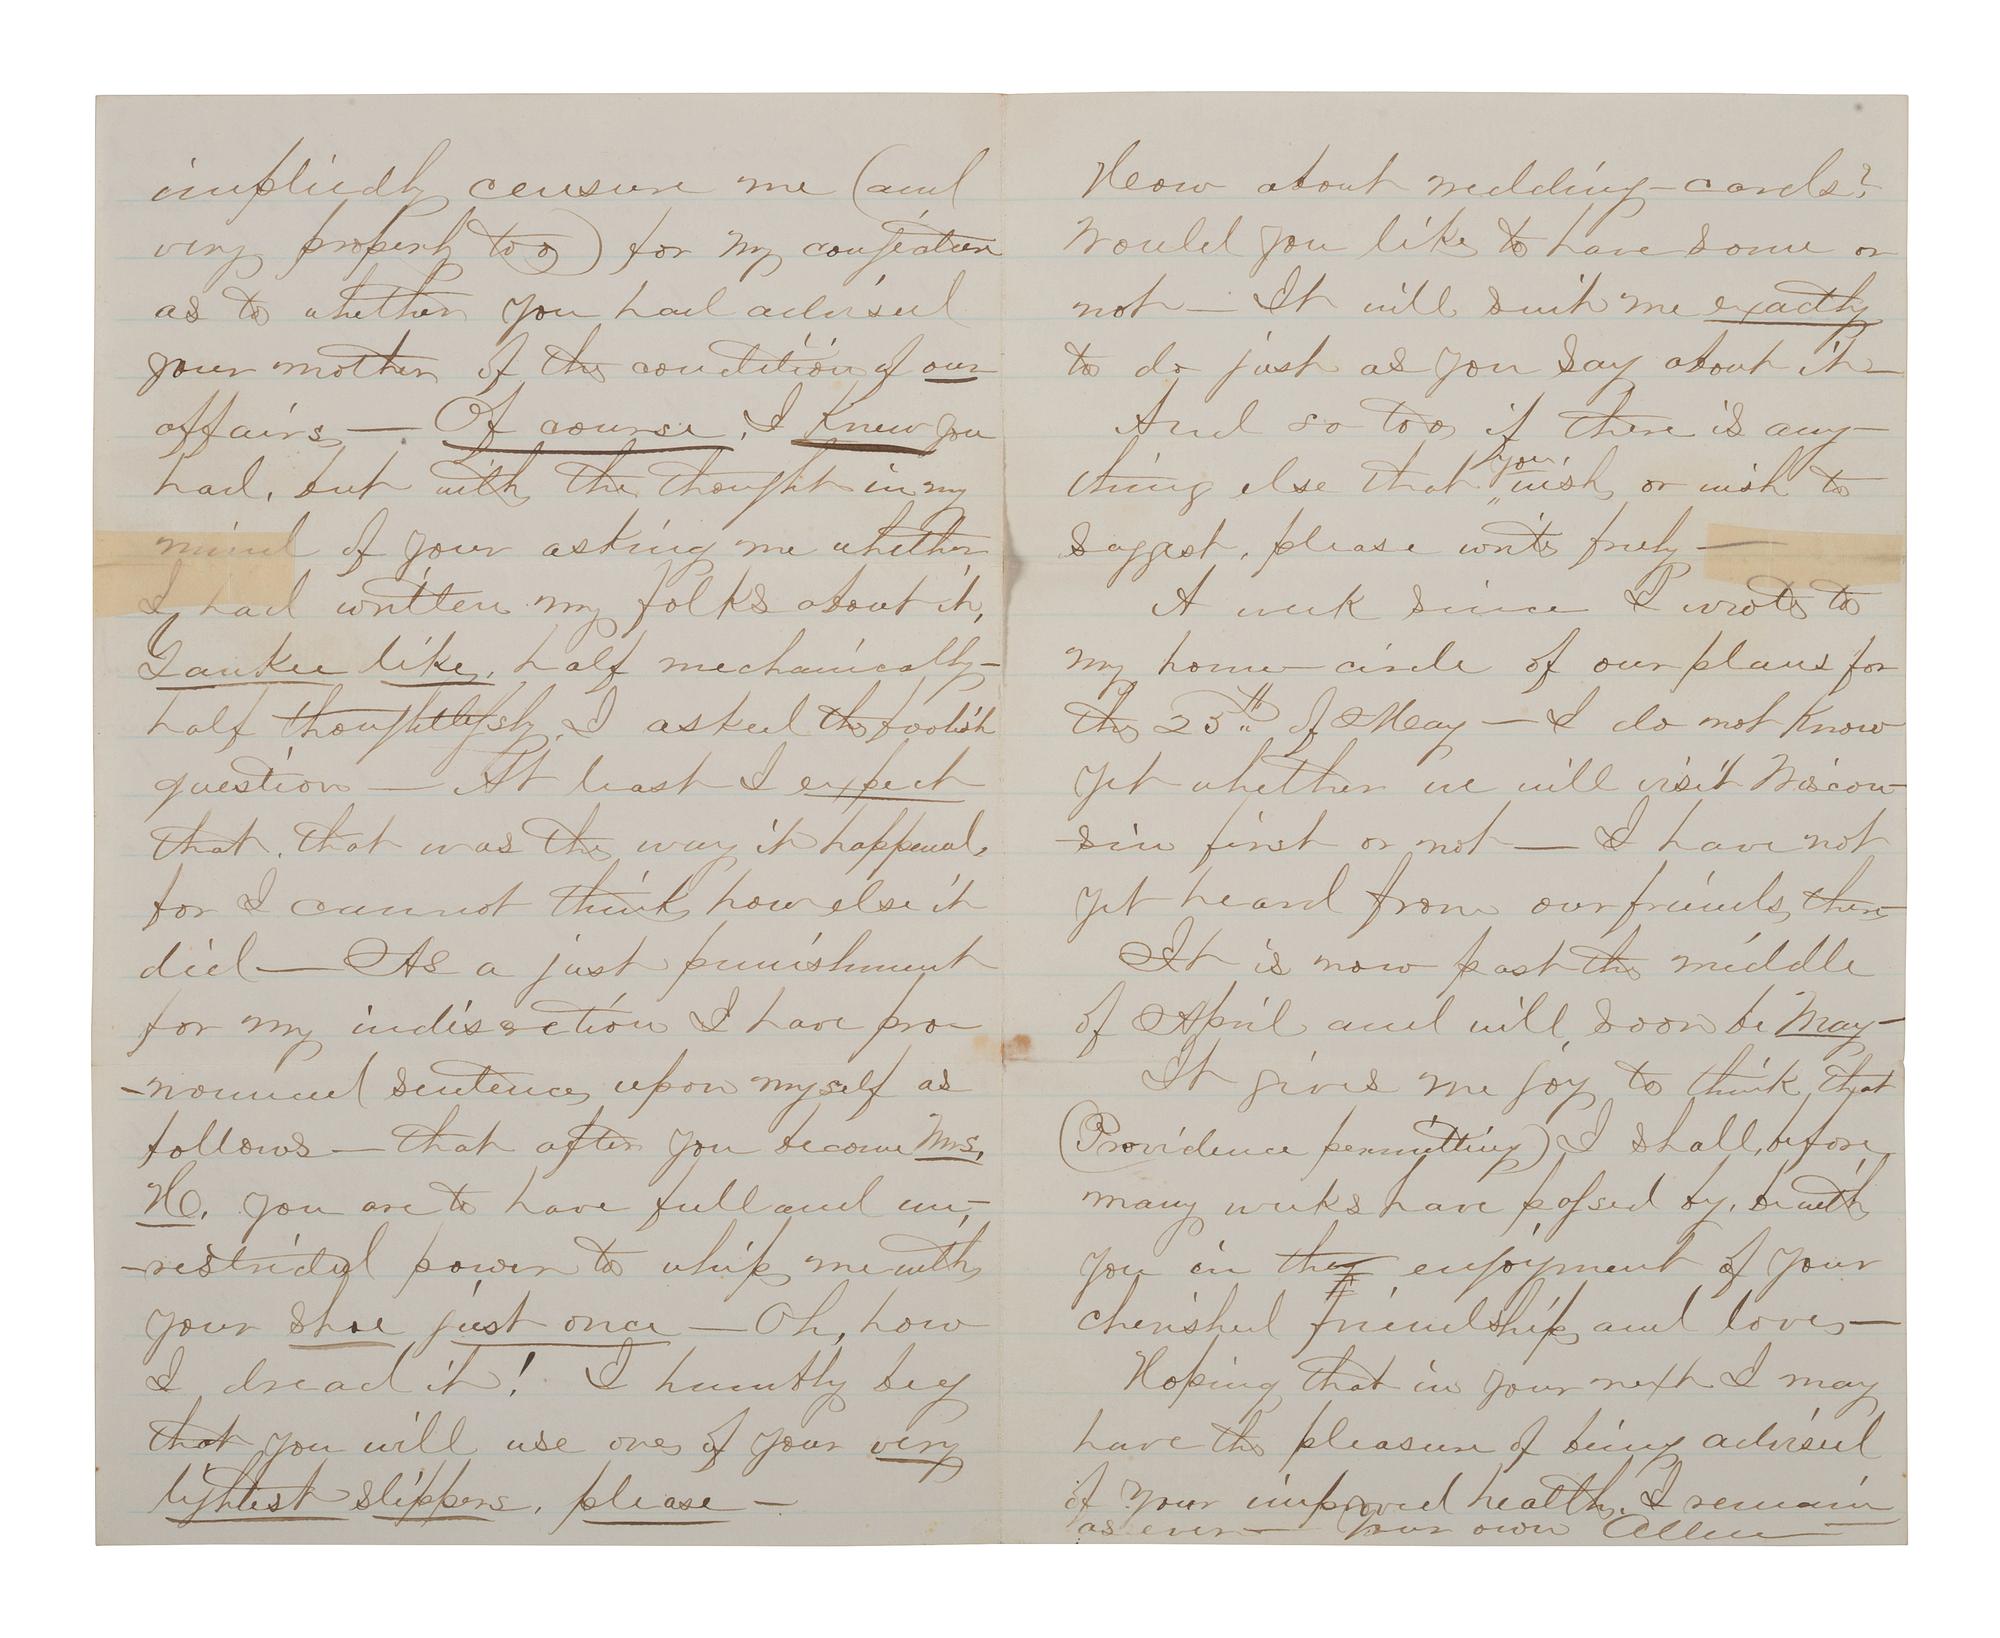 impliedly censure me (and
very properly too) for my conjecture
as to whether you had advised
your mother of the condition of our
affairs — Of course, I knew you
had, but with the thought in my
mind of your asking me whether
I had written my folks about it,
Yankee like, half mechanically—
half thoughtlessly, I asked the foolish
question — At least I expect
that, that was the way it happened,
for I cannot think how else it
did — As a just punishment
for my indiscretion I have pro
-nounced sentence upon myself as
follows — that after you become Mrs.
H. you are to have full and un-
-restricted power to whip me with
your shoe just once — Oh, how
I dread it! I humbly beg
that you will use one of your very
lightest slippers, please —
How about wedding-cards?
Would you like to have some or
not — It will suit me exactly
to do just as you say about it—
And so too if there is any—
thing else that you wish, or wish to
suggest, please write freely —
A week since I wrote to
my home-circle of our plans for
the 25th of May — I do not know
yet whether we will visit Wiscon-
-sin first or not — I have not
yet heard from our friends there
It is now past the middle
of April and will soon be May—
It gives me joy to think that
(Providence permitting) I shall, before
many weeks have passed by, be with
you in the enjoyment of your
cherished friendship and love —
Hoping that in your next I may
have the pleasure of being advised
of your improved health, I remain
as ever — your own Allen —